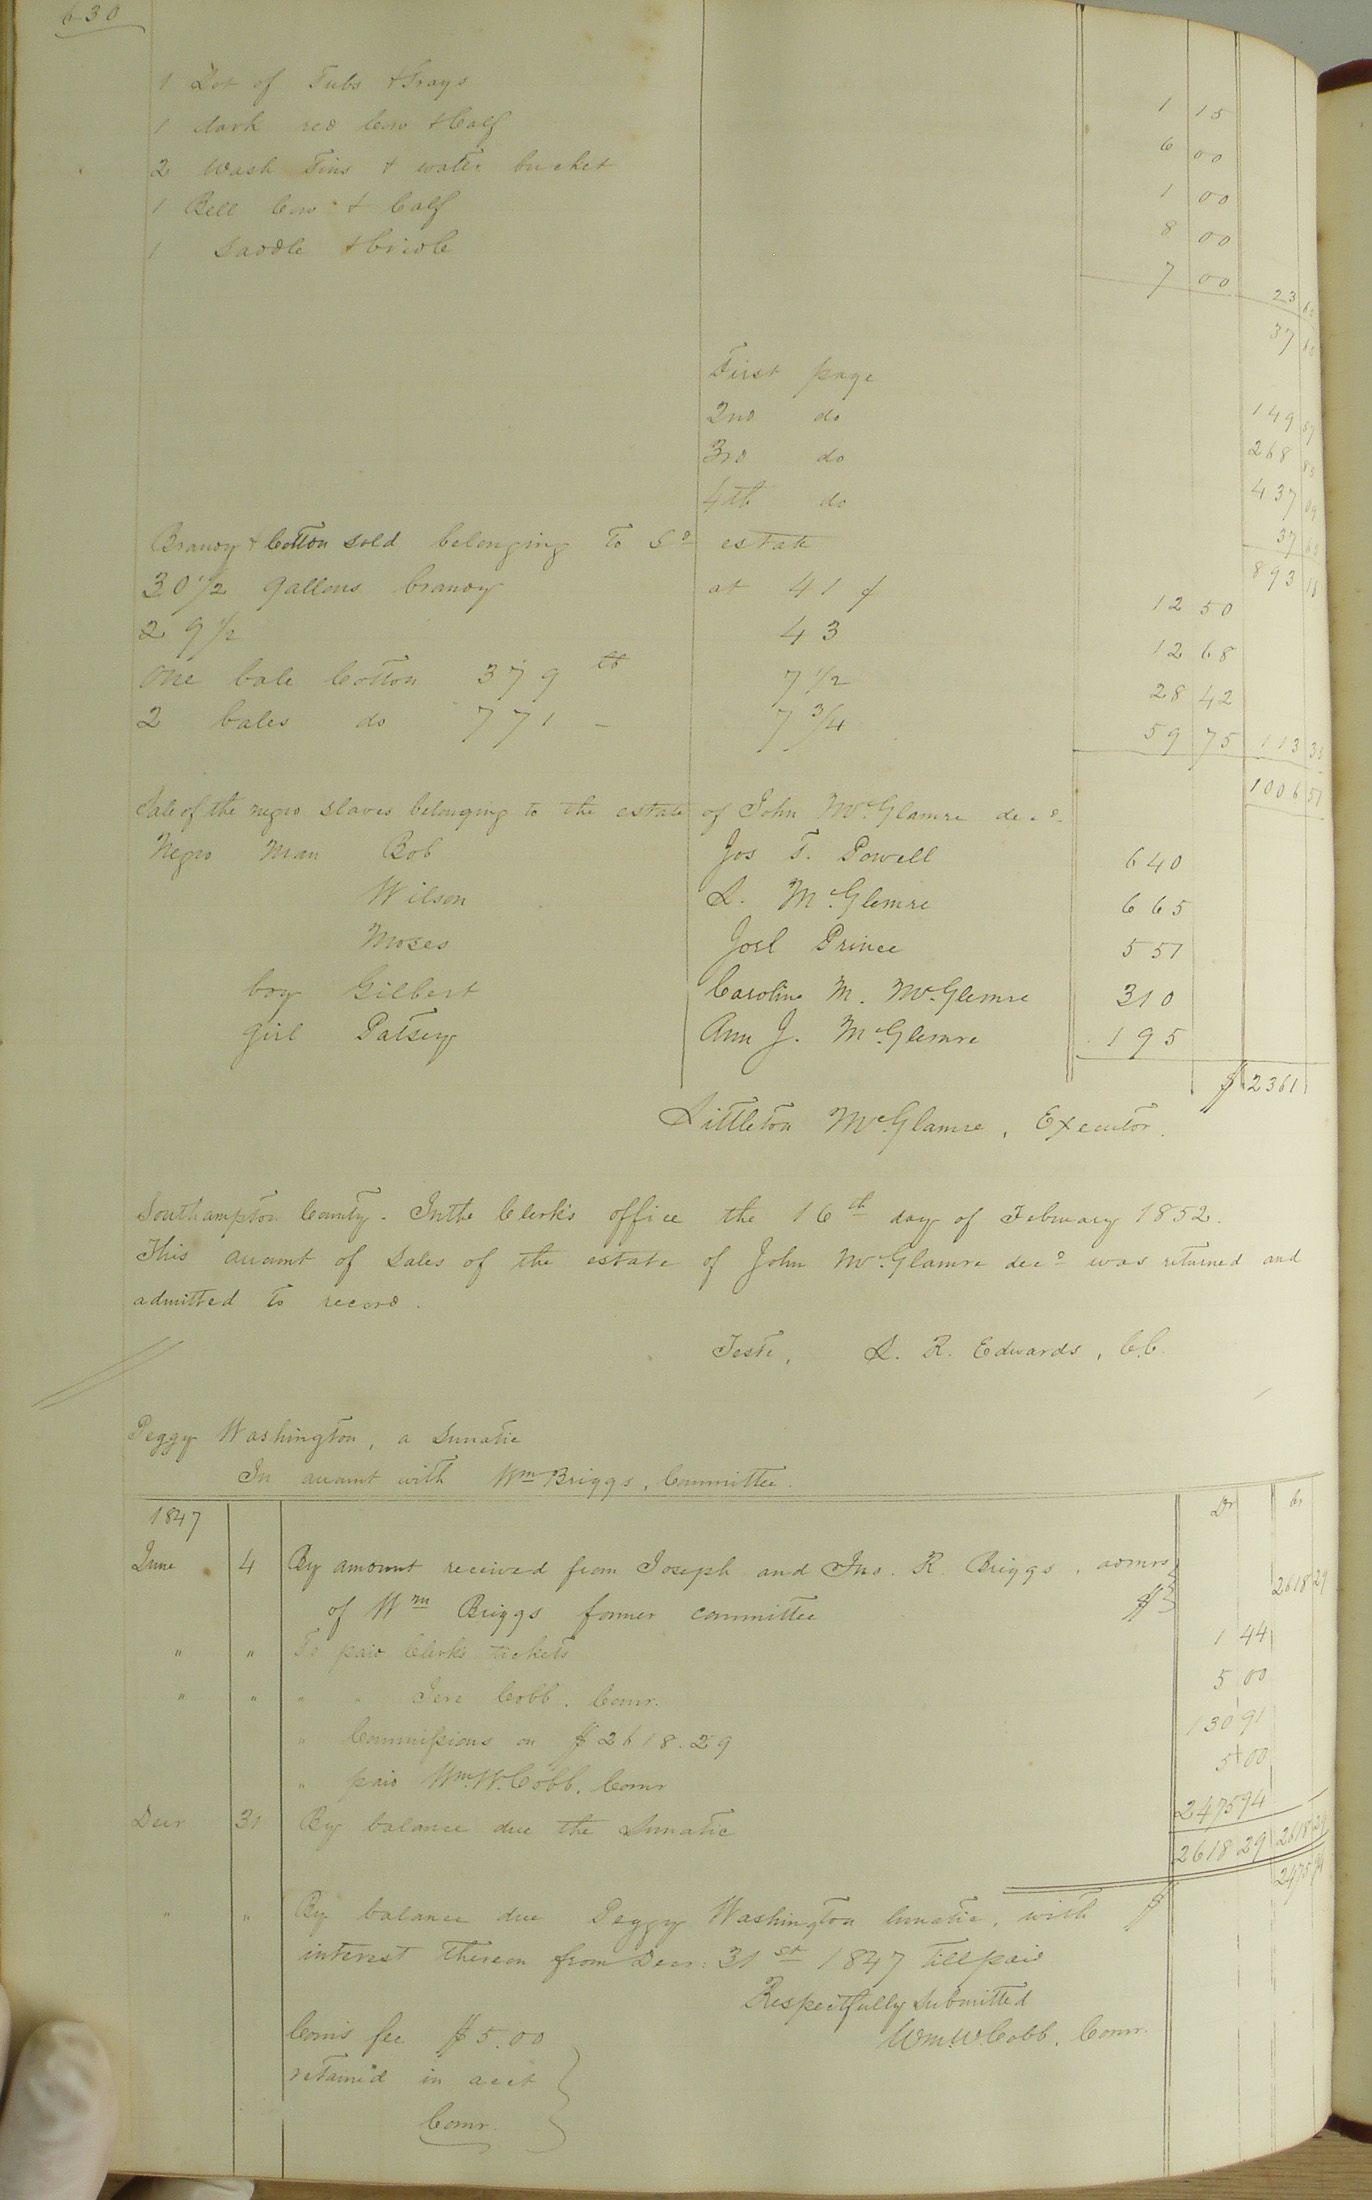 630
1 Lot of Tubs & Trays 1 15
1 dark red Cow & Calf 6 00
2 Wash Tins & water bucket 1 00
1 Bell Cow & Calf 8 00
1 Saddle & bridle 7 00 23
37
First page 149
2nd do 268
3rd do 437 09
4th do 37
Brandy & Cotton sold belonging to sd estate 893
30 1/2 gallons brandy at 41 ¢ 12 50
29 1/2 43 12 68
One bale Cotton 379 lb 7 1/2 28 42
2 bales do 771 - 7 3/4 59 75 113 35
1006 51
Sale of the negro slaves belonging to the estate of John McGlamre decd.
Negro Man Bob Jos T. Powell 640
Wilson L. McGlemre 665
Moses Joel Prince 551
boy Gilbert Caroline M. McGlemre 310
girl Patsey Ann J. McGlemre 195
$ 2361
Littleton McGlamre, Executor.
Southampton County. In the Clerk's office the 16th day of February 1852.
This account of Sales of the estate of John McGlamre decd was returned and
admitted to record.
Teste, L. R. Edwards, C.C.
Peggy Washington, a Lunatic
In account with Wm Briggs, Committee.
1847 Dr Cr
June 4 By amount received from Joseph and Jno. R. Briggs, admrs
of Wm Briggs former committee $ 2618 29
" " To paid Clerks tickets 1 44
" " " " Jere Cobb. Comr. 5 00
" Commissions on $2618.29 130 91
" paid Wm. W. Cobb, Comr 5 00
Decr 31 By balance due the Lunatic 2475 94
2618 29 2618 29
" " By balance due Peggy Washington lunatic, with $ 2475 94
interest thereon from Decr: 31st 1847 till paid
Respectfully Submitted
Wm. W. Cobb, Comr.
Com's fee $5.00
retained in acct
Comr.